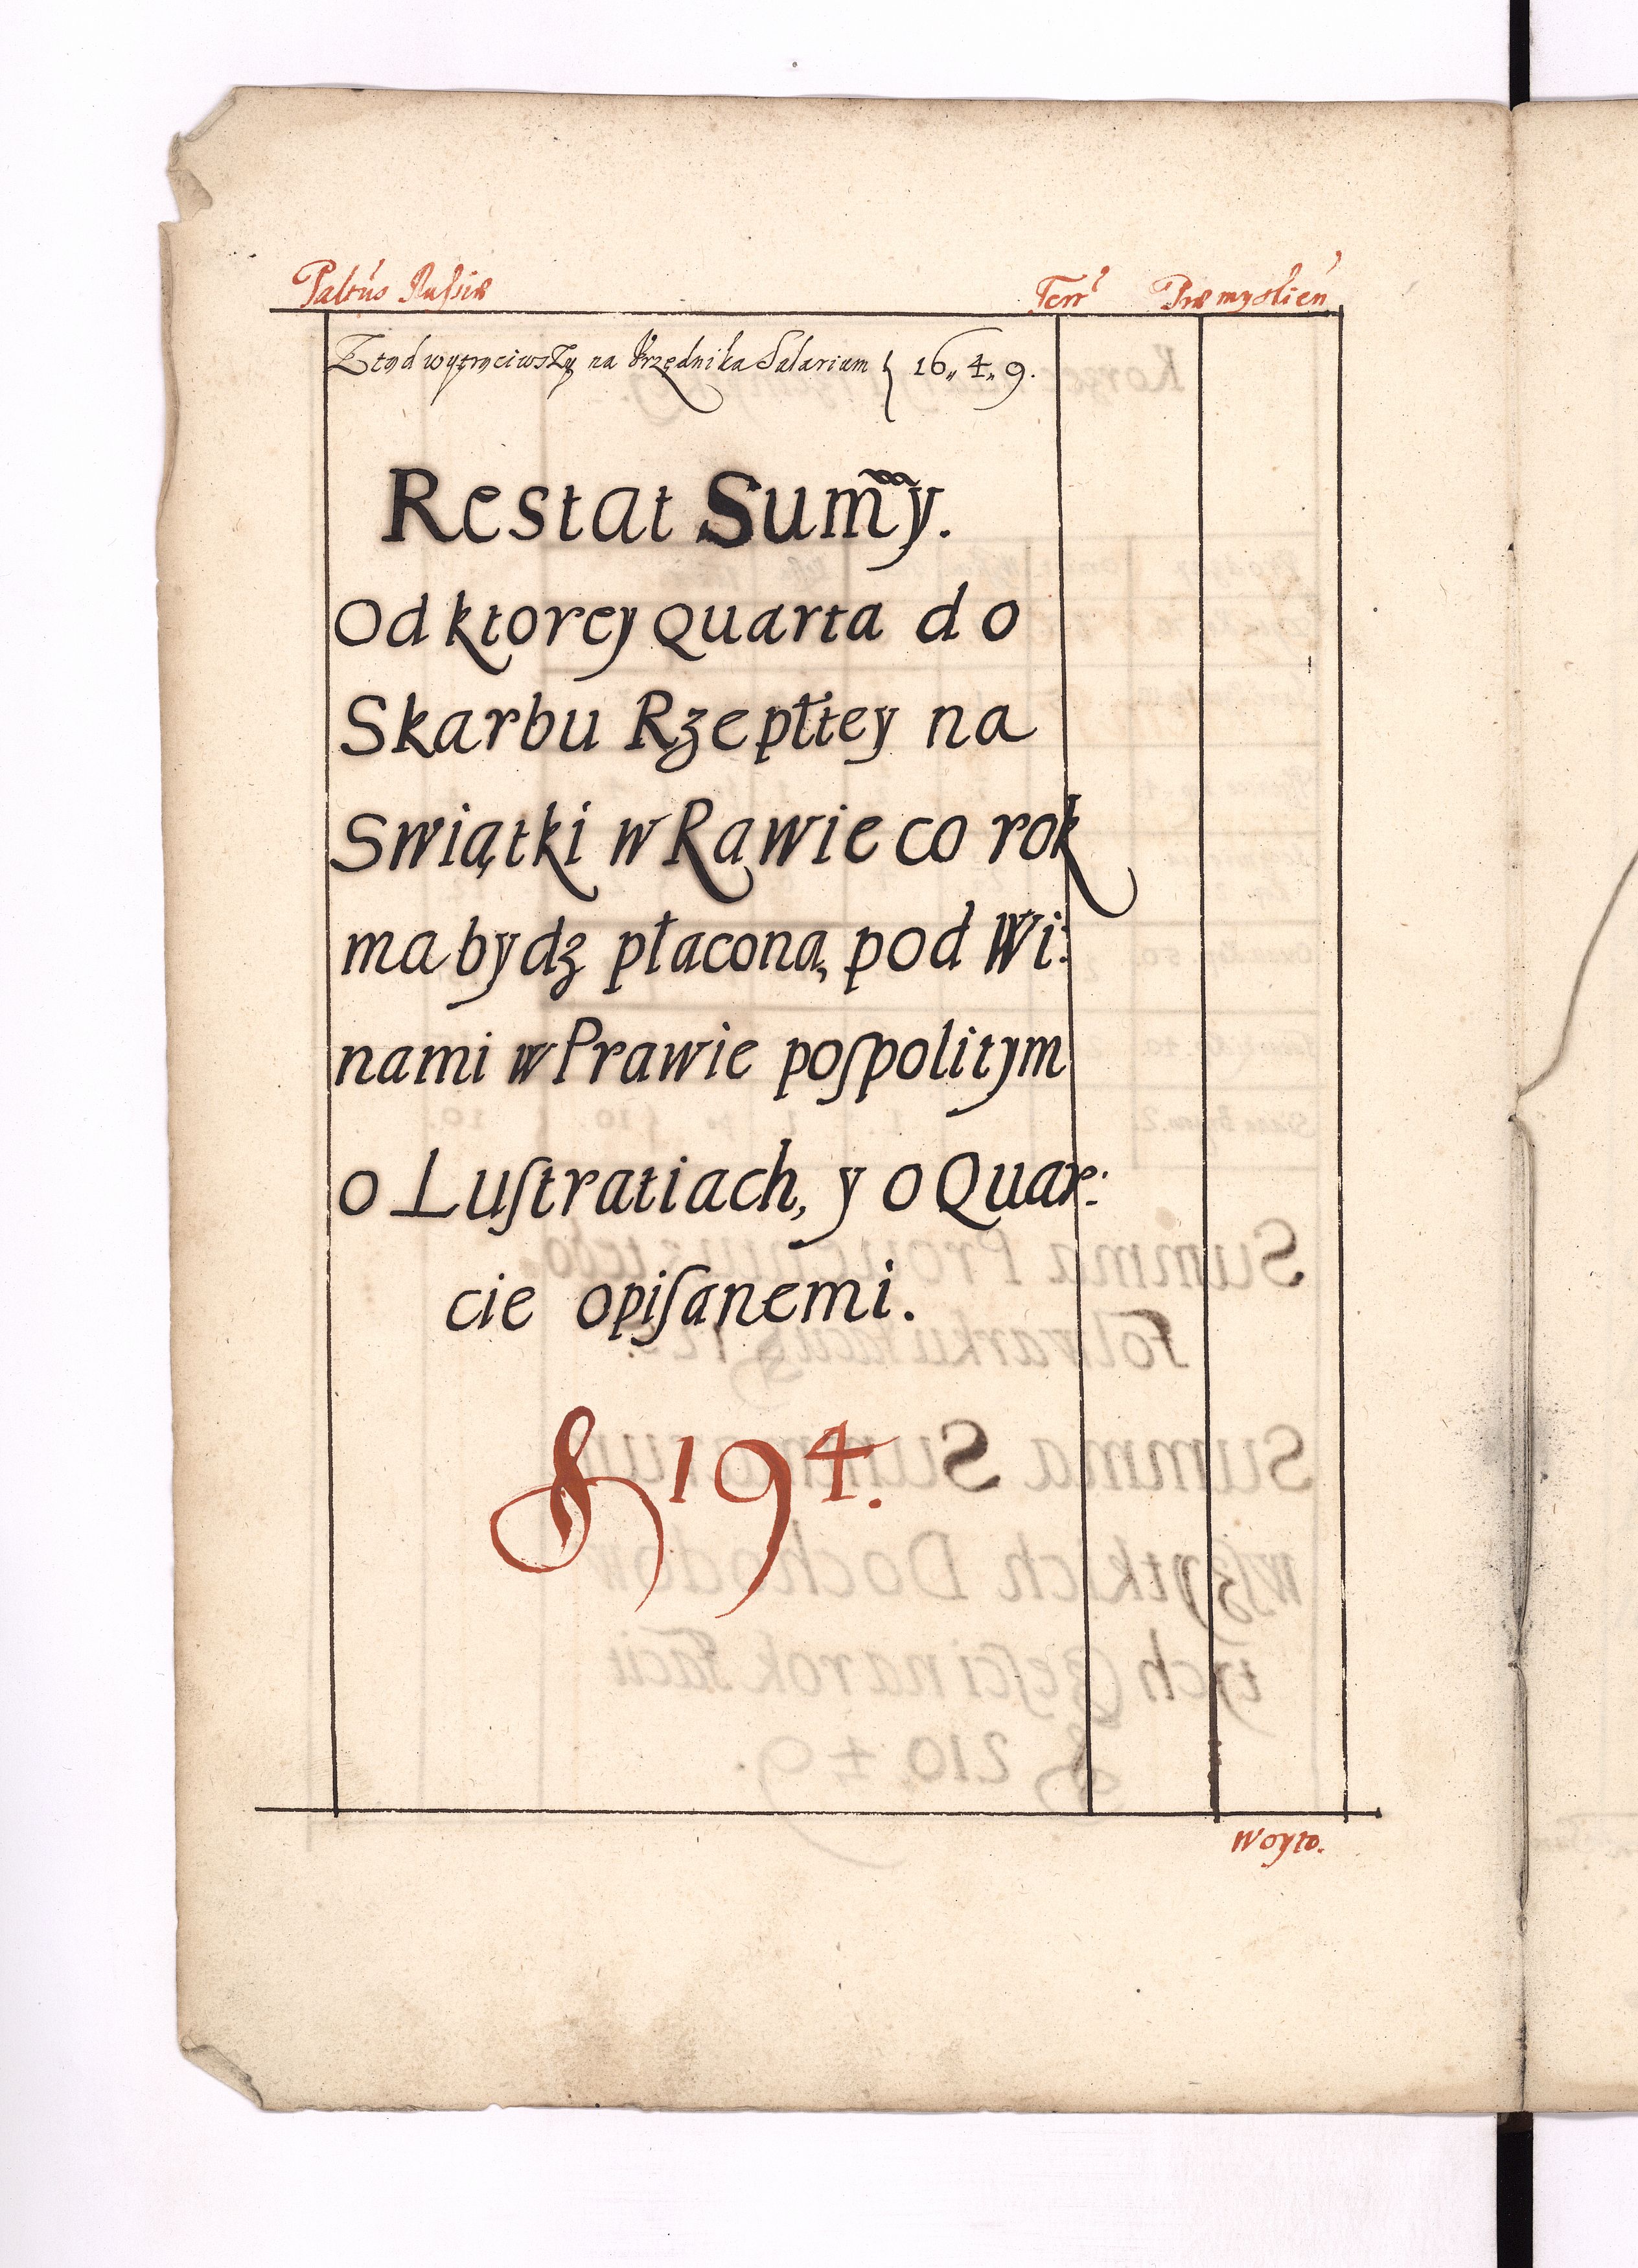 Paltūs Russiæ Terr Præmyslien
Ztąd wytrąciwszy na Vrzędnika Salarium 16„ 4„ 9.
Restat Sum̃y.
Od ktorey Quarta do
Skarbu Rzepltey na
Swiątki w Rawie co rok
ma bydz płacona, pod Wi:
nami w Prawie poſpolitym
o Luſtratiach, y o Quar:
cie opiſanemi.
f 194.
Woyto.